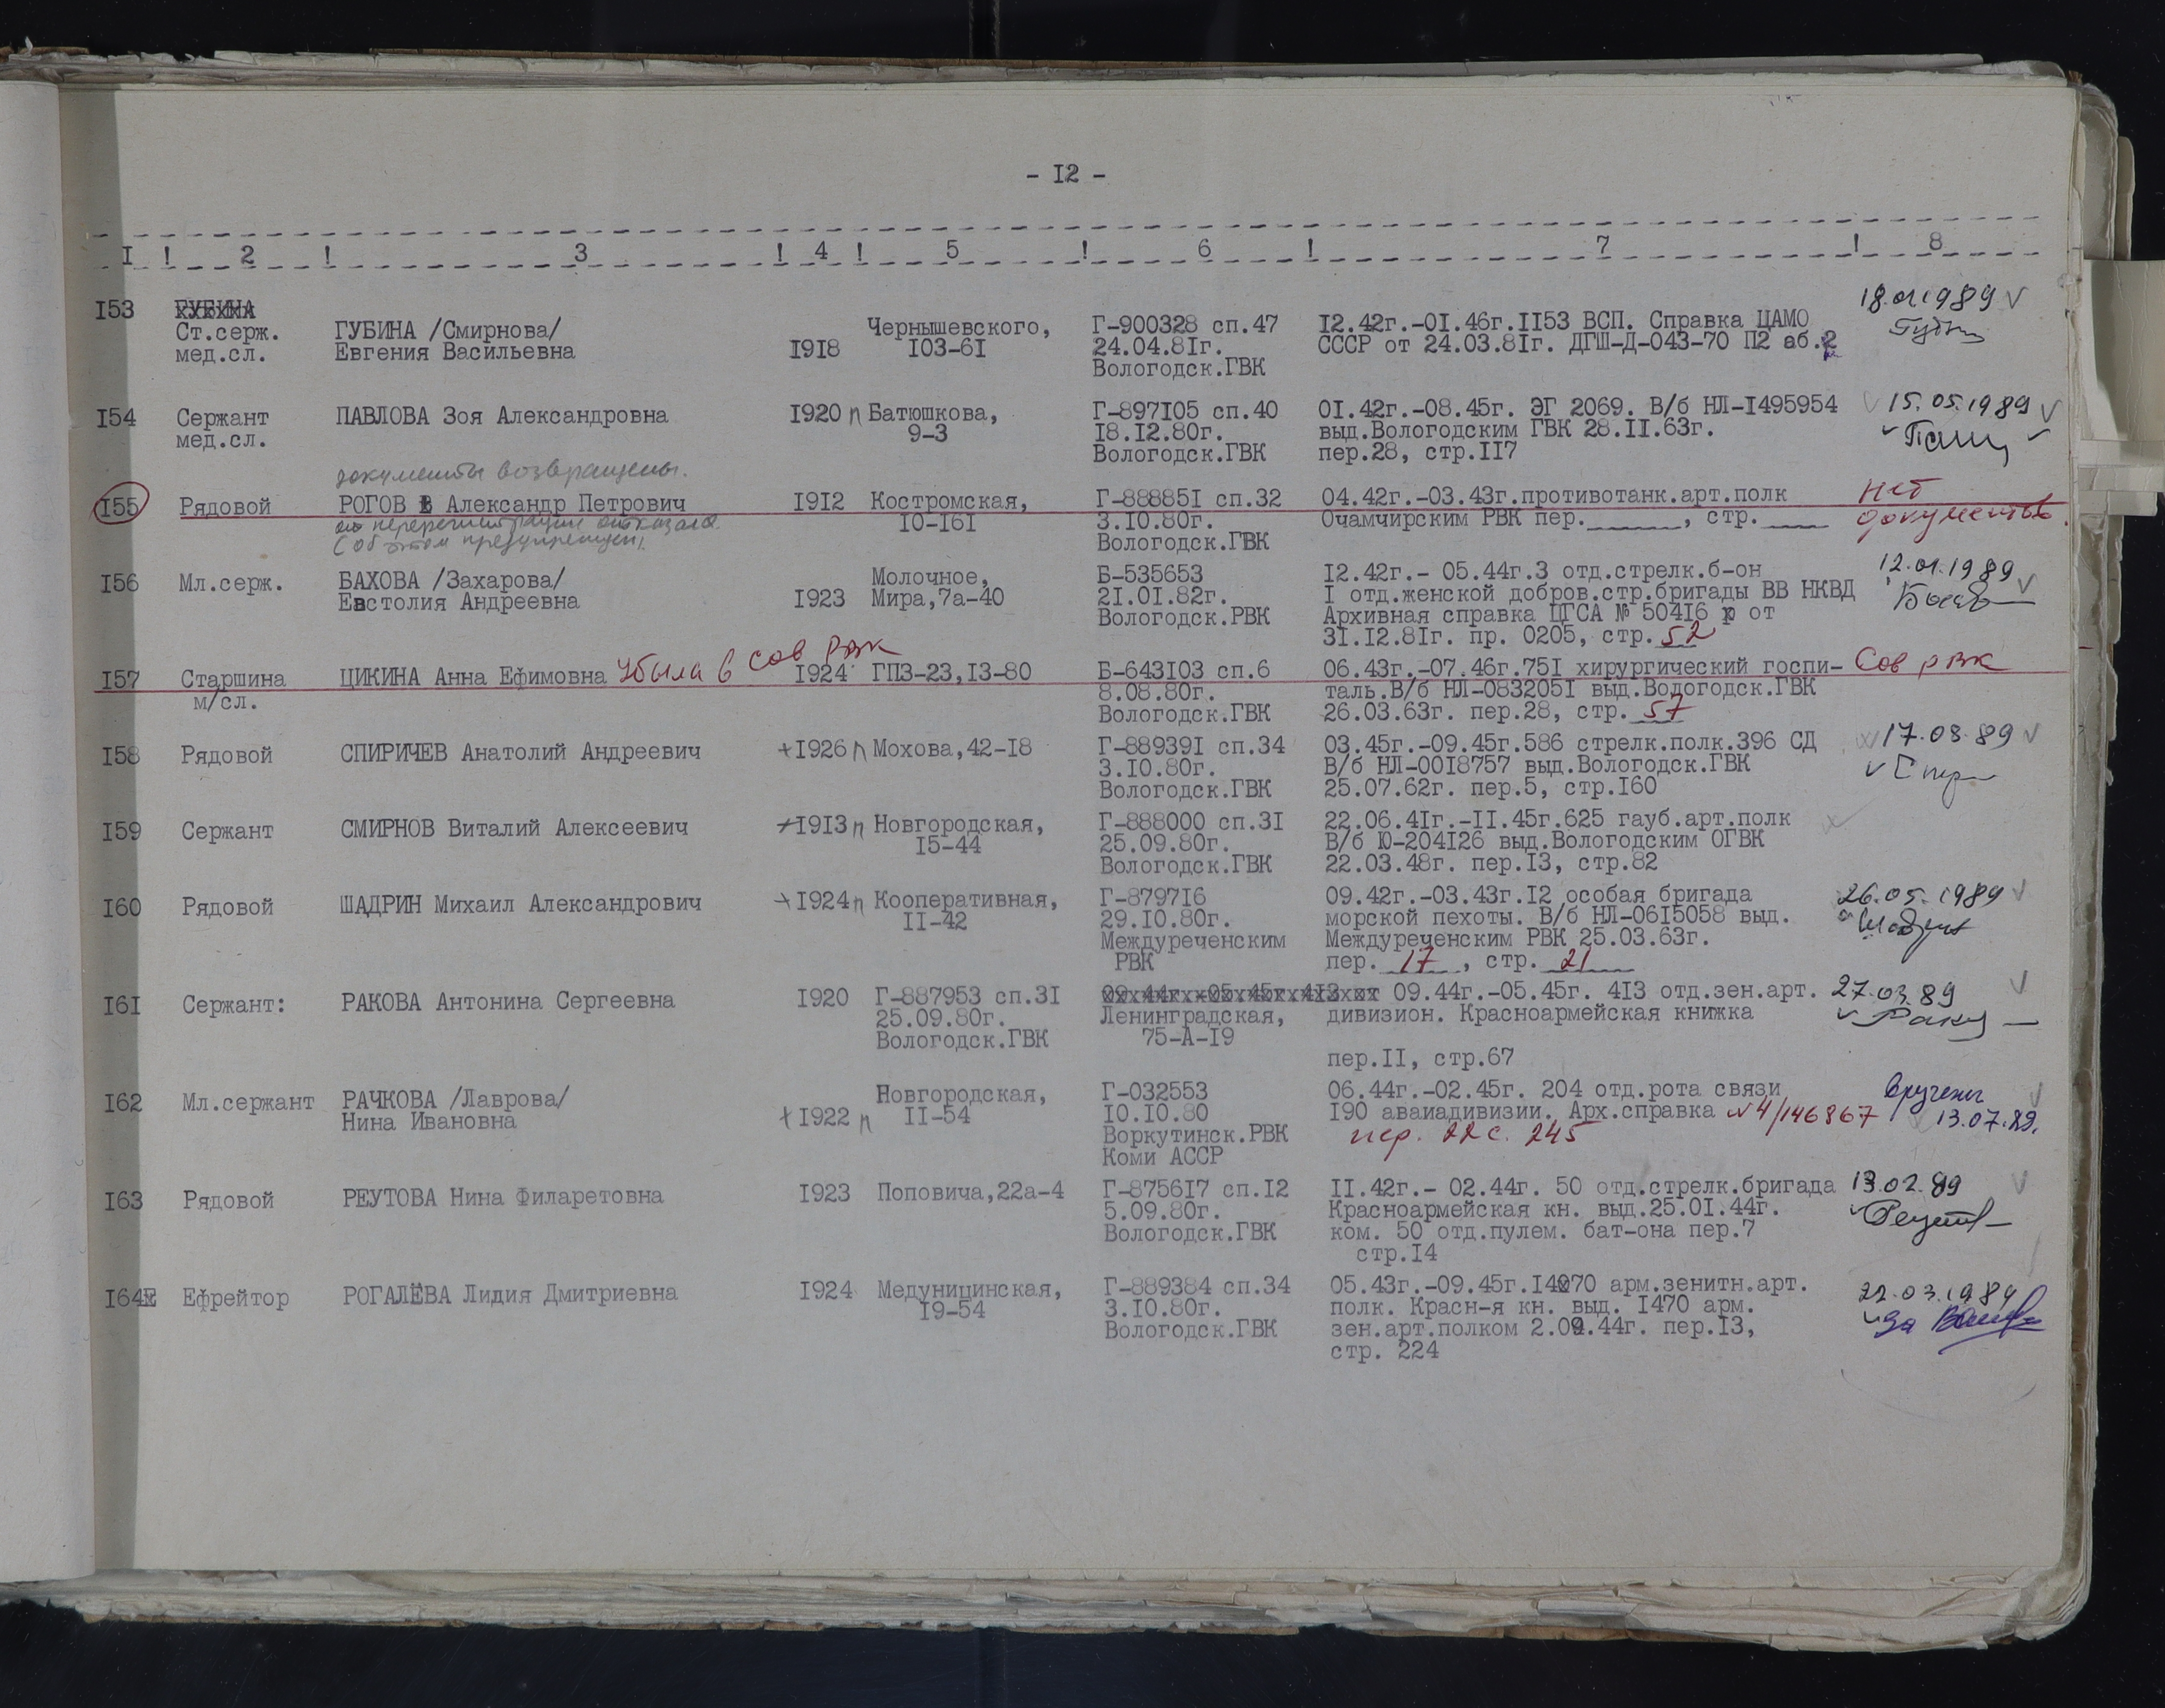 - I2 -
I ! 2 ! 3 ! 4 ! 5 ! 6 ! 7 ! 8
I53 ГУБИНА 18.01.1989 V
Ст.серж. ГУБИНА /Смирнова/ Чернышевского, Г-900328 сп.47 I2.42г.-0I.46г.II53 ВСП. Справка ЦАМО
мед.сл. Евгения Васильевна I9I8 I03-6I 24.04.8Iг. СССР от 24.03.8Iг. ДГШ-Д-043-70 П2 аб.2
Вологодск.ГВК
I54 Сержант ПАВЛОВА Зоя Александровна I920 п Батюшкова, Г-897I05 сп.40 0I.42г.-08.45г. ЭГ 2069. В/б НЛ-I495954 15.05.1989 V
мед.сл. 9-3 I8.I2.80г. выд.Вологодским ГВК 28.II.63г.
Вологодск.ГВК пер.28, стр.II7
документы возвращены.
I55 Рядовой РОГОВ Александр Петрович I9I2 Костромская, Г-88885I сп.32 04.42г.-03.43г.противотанк.арт.полк нет
от перерегистрации отказался I0-I6I 3.I0.80г. Очамчирским РВК пер._____, стр.___ документов.
(об этом предупрежден).
Вологодск.ГВК
I56 Мл.серж. БАХОВА /Захарова/ Молочное, Б-535653 I2.42г.- 05.44г.3 отд.стрелк.б-он 12.01.1989 V
Евстолия Андреевна I923 Мира,7а-40 2I.0I.82г. I отд.женской добров.стр.бригады ВВ НКВД
Вологодск.РВК Архивная справка ЦГСА № 504I6 от
3I.I2.8Iг. пр. 0205, стр. 52
I57 Старшина ЦИКИНА Анна Ефимовна убыла в Сов РВК I924 ГПЗ-23,I3-80 Б-643I03 сп.6 06.43г.-07.46г.75I хирургический госпи- Сов РВК
м/сл. 8.08.80г. таль.В/б НЛ-083205I выд.Вологодск.ГВК
Вологодск.ГВК 26.03.63г. пер.28, стр. 57
I58 Рядовой СПИРИЧЕВ Анатолий Андреевич +I926 п Мохова,42-I8 Г-88939I сп.34 03.45г.-09.45г.586 стрелк.полк.396 СД 17.03.89 V
3.I0.80г. В/б НЛ-00I8757 выд.Вологодск.ГВК
Вологодск.ГВК 25.07.62г. пер.5, стр.I60
I59 Сержант СМИРНОВ Виталий Алексеевич +I9I3 п Новгородская, Г-888000 сп.3I 22.06.4Iг.-II.45г.625 гауб.арт.полк
I5-44 25.09.80г. В/б Ю-204I26 выд.Вологодским ОГВК
Вологодск.ГВК 22.03.48г. пер.I3, стр.82
I60 Рядовой ШАДРИН Михаил Александрович +I924 п Кооперативная, Г-8797I6 09.42г.-03.43г.I2 особая бригада 26.05.1989 V
II-42 29.I0.80г. морской пехоты. В/б НЛ-06I5058 выд.
Междуреченским Междуреченским РВК 25.03.63г.
РВК пер. 17 , стр. 21
I6I Сержант: РАКОВА Антонина Сергеевна I920 Г-887953 сп.3I 09.44г.-05.45г.4I3 от 09.44г.-05.45г. 4I3 отд.зен.арт. 27.03.89 V
25.09.80г. Ленинградская, дивизион. Красноармейская книжка
Вологодск.ГВК 75-А-I9
пер.II, стр.67
I62 Мл.сержант РАЧКОВА /Лаврова/ Новгородская, Г-032553 06.44г.-02.45г. 204 отд.рота связи вручены V
Нина Ивановна +I922 п II-54 I0.I0.80 I90 аваиадивизии. Арх.справка №4/146867 13.07.89.
Воркутинск.РВК пер. 22 с. 245
Коми АССР
I63 Рядовой РЕУТОВА Нина Филаретовна I923 Поповича,22а-4 Г-8756I7 сп.I2 II.42г.- 02.44г. 50 отд.стрелк.бригада 13.02.89 V
5.09.80г. Красноармейская кн. выд.25.0I.44г.
Вологодск.ГВК ком. 50 отд.пулем. бат-она пер.7
стр.I4
I64 Ефрейтор РОГАЛЁВА Лидия Дмитриевна I924 Медуницинская, Г-889384 сп.34 05.43г.-09.45г.I470 арм.зенитн.арт. 22.03.1989
I9-54 3.I0.80г. полк. Красн-я кн. выд. I470 арм. за
Вологодск.ГВК зен.арт.полком 2.09.44г. пер.I3,
стр. 224